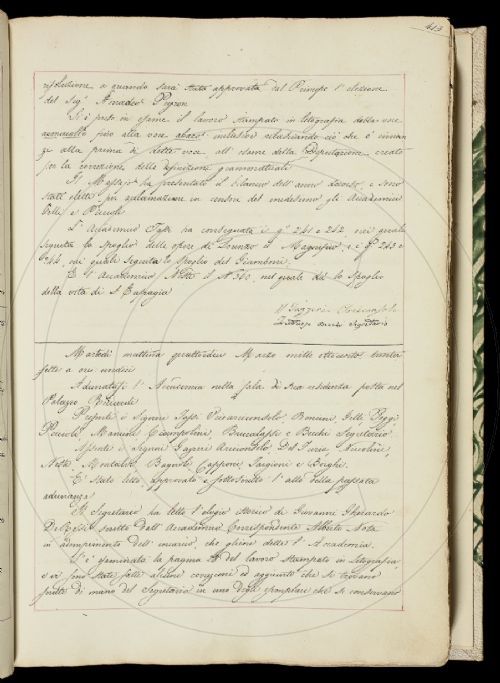 413
risoluzione a quando sarà stata approvata dal Principe l'elezione
del Sig.r Amadeo Peyron
Si è preso in esame il lavoro stampato in litografia dalla voce
fino alla voce inclusive rilasciando ciò che è innan
zi alla parima di detta voce all'esame della Deputazione creata
per la correzione delle definizioni grammaticali
Il Massajo ha presentato il bilancio dell'anno decorso, e sono
stati eletti per acclamazione in censori del medesimo gli Accademici
Gelli e Piccioli
L'Accademico Tassi ha consegnati i q.i 241 e 242, nei quali
seguita lo spoglio delle opere di Lorenzo il Magnifico, e i q.i 243 e
244, nei quali seguita lo spoglio del Giamboni.
E l'Accademico Nesti il N. 340, nel quale è lo spoglio
della vita di S. Eufragia
Segretario
Martedì mattina quattordici Marzo mille ottocento trenta
sette a ore undici
Adunatasi l'Accademia nella sala di sua residenza posta nel
Palazzo Riccardi
Presenti i Signori Tassi Pucci Bencini, Gelli, Poggi
Piccioli, Mannini Ciampolini, Bucalossi e Becchi Segretario
Assenti i Signori Gazzeri Arciconsolo, Del Furia, Niccolini,
Nesti, Montalvi, Bagnoli, Capponi, Targioni e Borghi.
È stato letto approvato e sottoscritto l'atto della passata
adunanza
Il Segretario ha letto l'elogio storico di Giovanni Gherardo
De Rossi scritto dall'Accademico Corrispondente Alberto Nota
in adempimento dell'incarico, che gliene dette l'Accademia.
S'è esaminata la pagina 28 del lavoro stampato in litografia,
e vi sono state fatte alcune correzioni ed aggiunte che si trovano
scritte di mano del Segretario in uno degli esemplari che si conservano